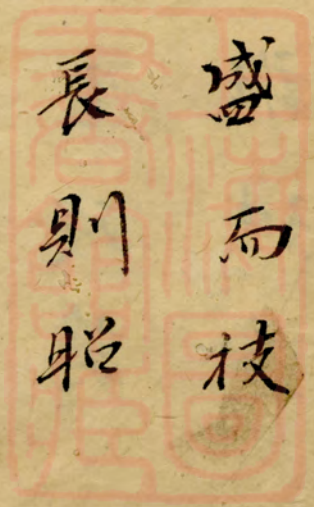 盛而枝
長則昭